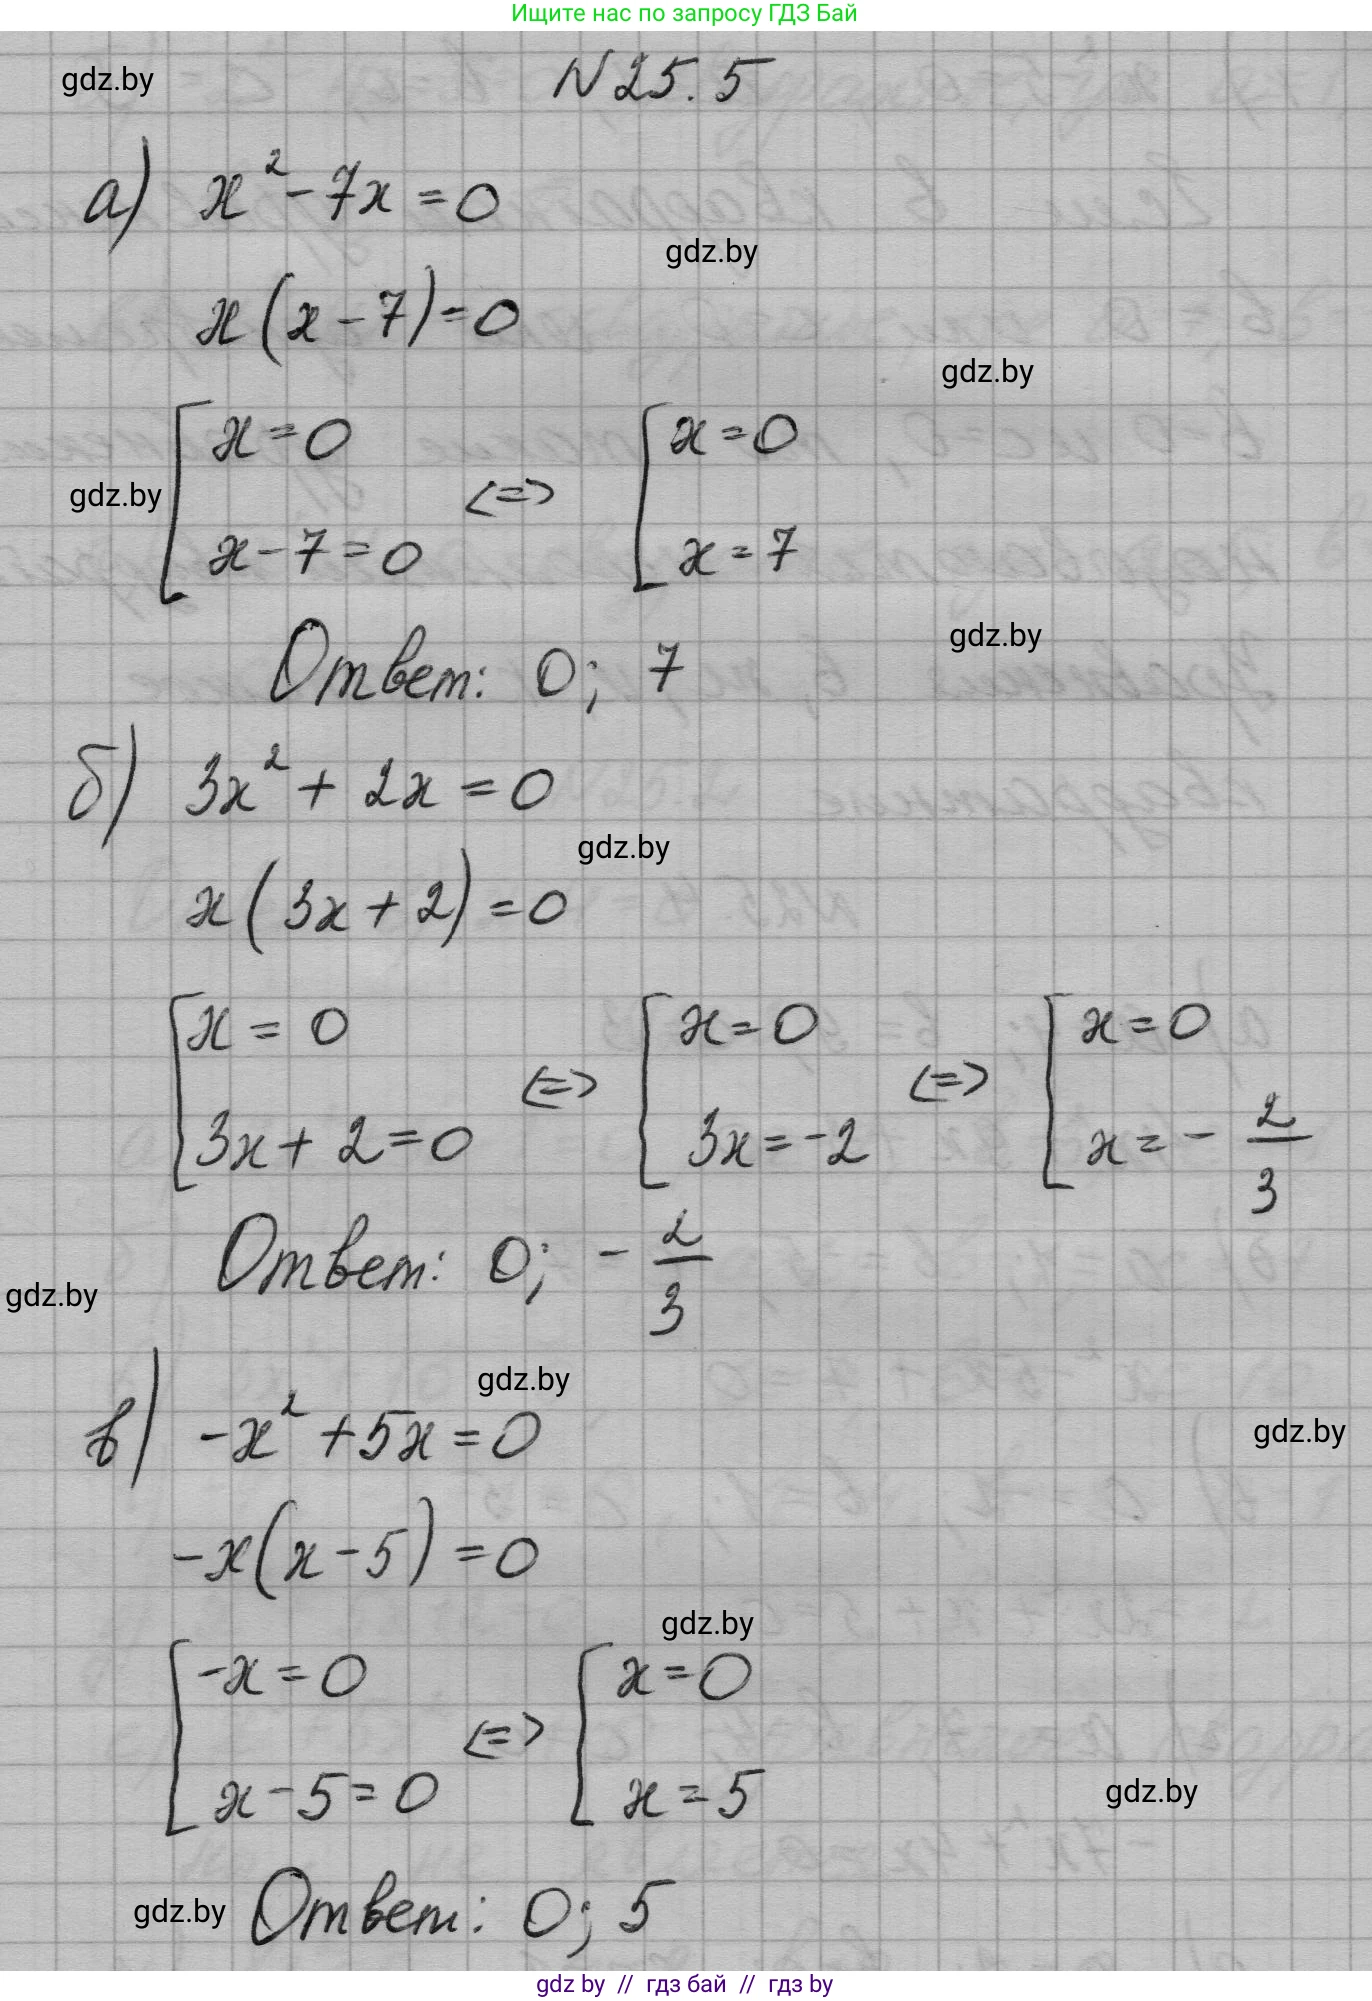 Ищите нас по запросу ГДЗ Бай
gdz.by
N25.5
а) x² - 7x = 0
gdz.by
x(x - 7) = 0
gdz.by
[x = 0 [x = 0
gdz.by <=>
x - 7 = 0 x = 7
gdz.by
Ответ: 0; 7
б) 3x² + 2x = 0
gdz.by
x(3x + 2) = 0
[x = 0 [x = 0 [x = 0
<=> <=>
3x + 2 = 0 3x = -2 x = - 2/3
Ответ: 0; - 2/3
gdz.by
gdz.by
в) -x² + 5x = 0
gdz.by
-x(x - 5) = 0
gdz.by
[-x = 0 [x = 0
<=>
x - 5 = 0 x = 5
gdz.by
gdz.by
Ответ: 0; 5
gdz by // гдз бай // гдз by